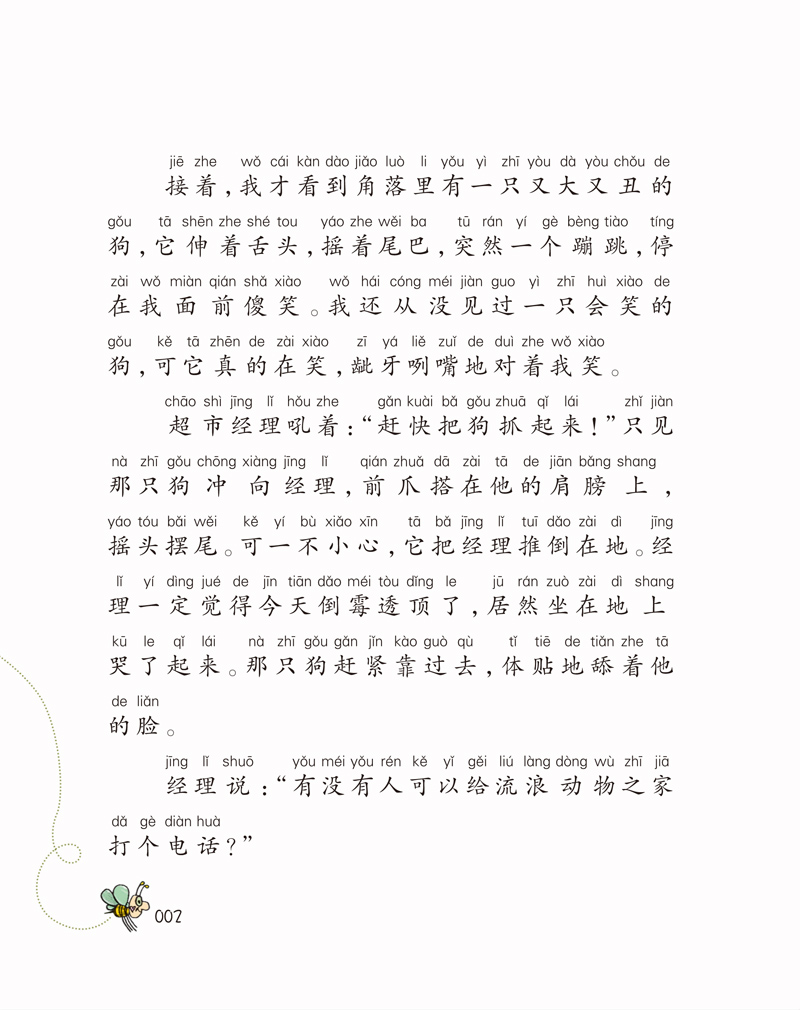 jiē zhe wǒ cái kàn dào jiǎo luò li yǒu yì zhī yòu dà yòu chǒu de
接着，我才看到角落里有一只又大又丑的
gǒu tā shēn zhe shé tou yáo zhe wěi ba tū rán yí gè bèng tiào tíng
狗，它伸着舌头，摇着尾巴，突然一个蹦跳，停
zài wǒ miàn qián shǎ xiào wǒ hái cóng méi jiàn guo yì zhī huì xiào de
在我面前傻笑。我还从没见过一只会笑的
gǒu kě tā zhēn de zài xiào zī yá liě zuǐ de duì zhe wǒ xiào
狗，可它真的在笑，龇牙咧嘴地对着我笑。
chāo shì jīng lǐ hǒu zhe gǎn kuài bǎ gǒu zhuā qǐ lái zhǐ jiàn
超市经理吼着：“赶快把狗抓起来！”只见
nà zhī gǒu chōng xiàng jīng lǐ qián zhuǎ dā zài tā de jiān bǎng shang
那只狗冲向经理，前爪搭在他的肩膀上，
yáo tóu bǎi wěi kě yí bù xiǎo xīn tā bǎ jīng lǐ tuī dǎo zài dì jīng
摇头摆尾。可一不小心，它把经理推倒在地。经
lǐ yí dìng jué de jīn tiān dǎo méi tòu dǐng le jū rán zuò zài dì shang
理一定觉得今天倒霉透顶了，居然坐在地上
kū le qǐ lái nà zhī gǒu gǎn jǐn kào guò qù tǐ tiē de tiǎn zhe tā
哭了起来。那只狗赶紧靠过去，体贴地舔着他
de liǎn
的脸。
jīng lǐ shuō yǒu méi yǒu rén kě yǐ gěi liú làng dòng wù zhī jiā
经理说：“有没有人可以给流浪动物之家
dǎ gè diàn huà
打个电话？”
002